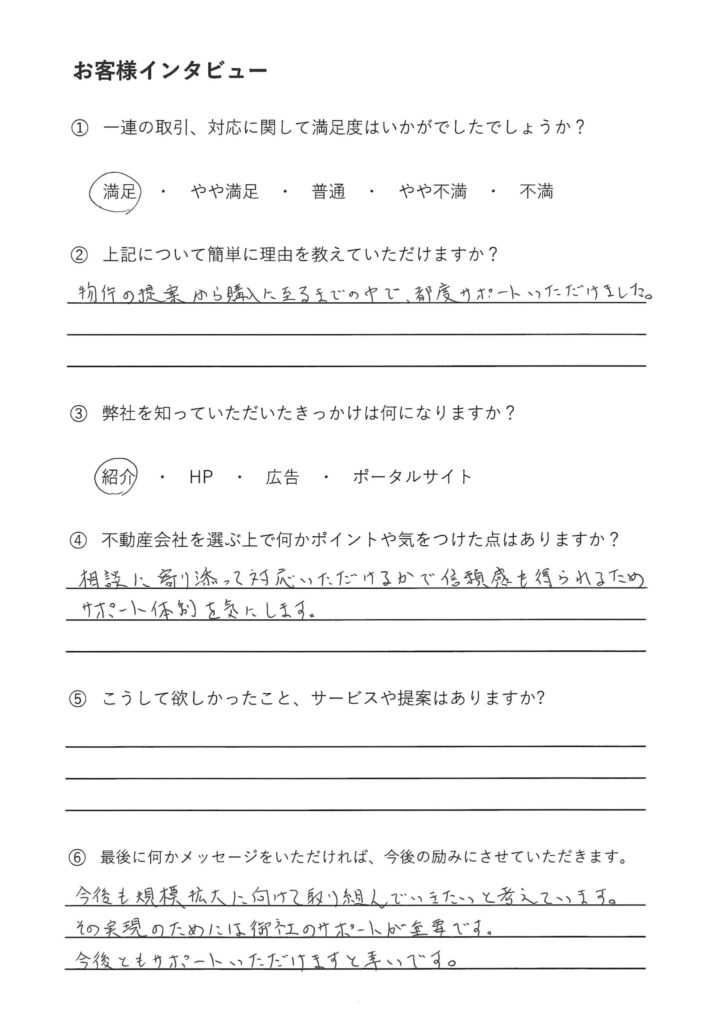 お客様インタビュー
① 一連の取引、対応に関して満足度はいかがでしたでしょうか？
満足 ・ やや満足 ・ 普通 ・ やや不満 ・ 不満
② 上記について簡単に理由を教えていただけますか？
物件の提案から購入に至るまでの中で、都度サポートいただけました。
③ 弊社を知っていただいたきっかけは何になりますか？
紹介 ・ HP ・ 広告 ・ ポータルサイト
④ 不動産会社を選ぶ上で何かポイントや気をつけた点はありますか？
相談に寄り添って対応いただけるかで信頼感も得られるため
サポート体制を気にします。
⑤ こうして欲しかったこと、サービスや提案はありますか？
⑥ 最後に何かメッセージをいただければ、今後の励みにさせていただきます。
今後も規模拡大に向けて取り組んでいきたいと考えています。
その実現のためには御社のサポートが重要です。
今後ともサポートいただけますと幸いです。